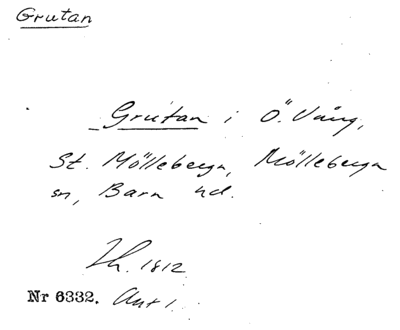 Grutan
Grutan i Ö. Vång,
St. Mölleberga, Mölleberga
sn, Bara hd.
Zh. 1812
Nr 6332. Akt 1.